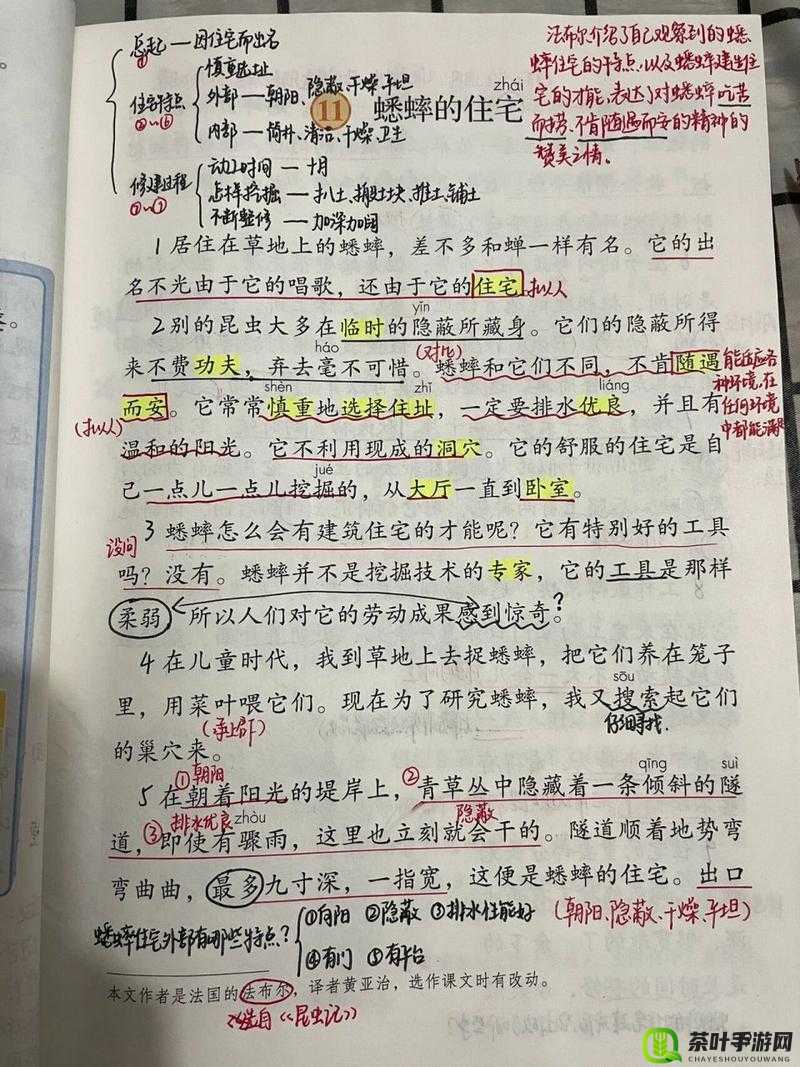 总起 — 因住宅而出名
①
住宅特点
②~⑥
慎重选址
外部 — 朝阳、隐蔽、干燥、平坦
内部 — 简朴、清洁、干燥、卫生
修建过程
动工时间 — 十月
怎样挖掘 — 扒土、搬土块、推土、铺土
不断整修 — 加深加阔
zhái
11 蟋蟀的住宅
法布尔介绍了自己观察到的蟋
蟀住宅的特点,以及蟋蟀建造住
宅的才能,表达了对蟋蟀吃苦
而劳、不肯随遇而安的精神的
赞美之情。
1 居住在草地上的蟋蟀，差不多和蝉一样有名。它的出
名不光由于它的唱歌，还由于它的住宅。
拟人
yǐn
2 别的昆虫大多在临时的隐蔽所藏身。它们的隐蔽所得
háo
(对比)
来不费功夫，弃去毫不可惜。蟋蟀和它们不同，不肯随遇
能适应各
种环境,在
任何环境
中都能满足
shèn zhǐ liáng
而安。它常常慎重地选择住址，一定要排水优良，并且有
(拟人)
温和的阳光。它不利用现成的洞穴。它的舒服的住宅是自
jué
己一点儿一点儿挖掘的，从大厅一直到卧室。
设问
3 蟋蟀怎么会有建筑住宅的才能呢？它有特别好的工具
吗？没有。蟋蟀并不是挖掘技术的专家，它的工具是那样
柔弱，所以人们对它的劳动成果感到惊奇。
?
4 在儿童时代，我到草地上去捉蟋蟀，把它们养在笼子
sōu
里，用菜叶喂它们。现在为了研究蟋蟀，我又搜索起它们
(承上启下)
仔细寻找.
的巢穴来。
①朝阳
②
qīng suì
5 在朝着阳光的堤岸上，青草丛中隐藏着一条倾斜的隧
排水优良
zhòu
隐蔽
道，③即使有骤雨，这里也立刻就会干的。隧道顺着地势弯
弯曲曲，最多九寸深，一指宽，这便是蟋蟀的住宅。出口
蟋蟀住宅外部有哪些特点?
①向阳 ②隐蔽 ③排水性能好
(朝阳、隐蔽、干燥、平坦)
④有门 ⑤有平台
本文作者是法国的法布尔，译者黄亚治，选作课文时有改动。
选自《昆虫记》
茶叶手游网
CHAYESHOUYOUWANG